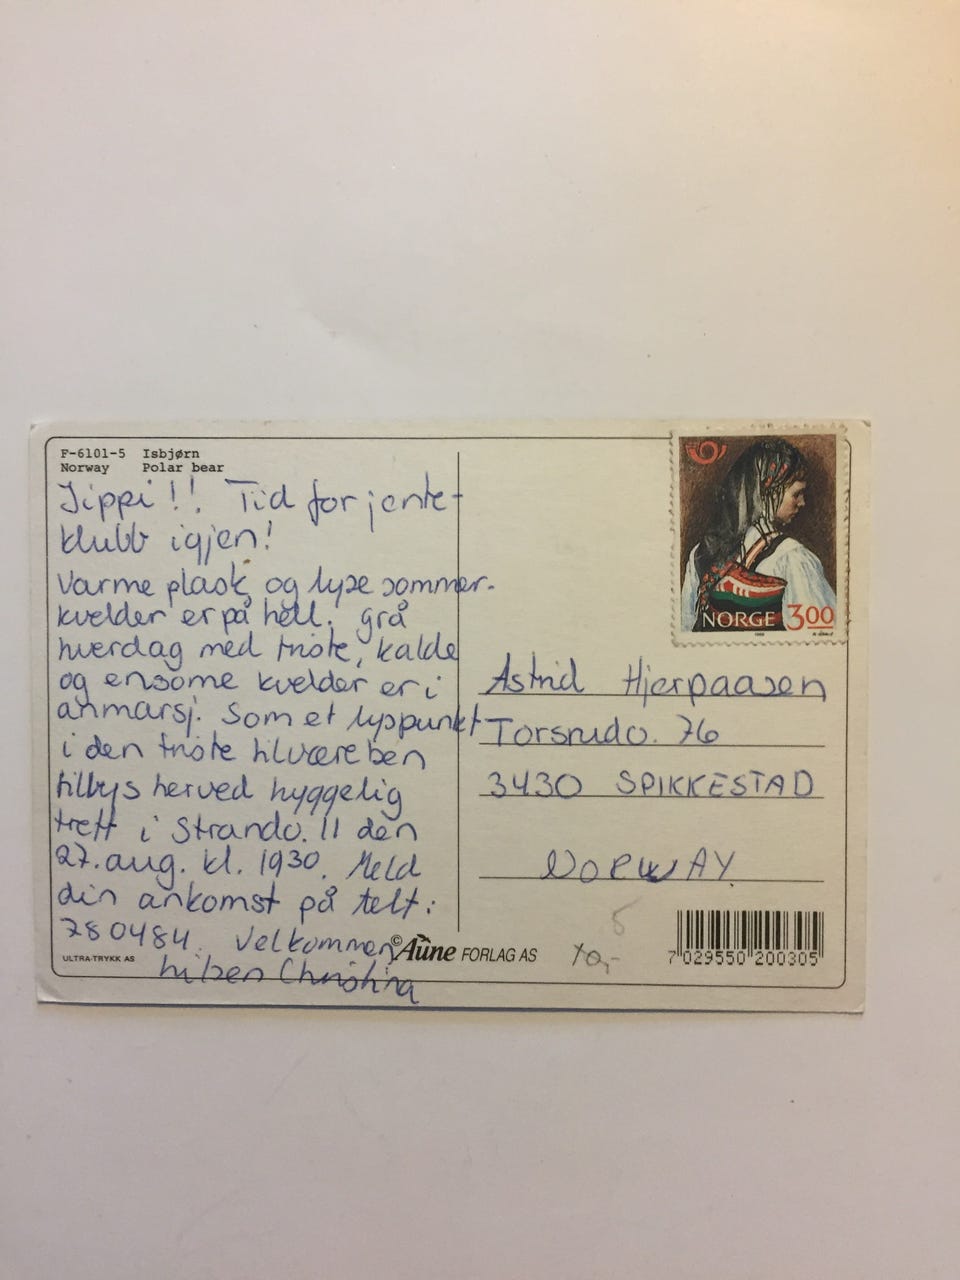 F-6101-5 Isbjørn
Norway Polar bear
Jippi!! Tid for jente-
klubb igjen!
Varme plask og lyse sommer-
kvelder er på hell. grå
hverdag med triste, kalde
og ensome kvelder er i
anmarsj. Som et lyspunkt
i den triste tilværelsen
tilbys herved hyggelig
treff i Strando. 11 den
27. aug. kl. 1930. Meld
din ankomst på telf:
780484. Velkommen
hilsen Christina
ULTRA-TRYKK AS
© Aune FORLAG AS
NORGE 3.00
Astrid Hjerpaasen
Torsrudo. 76
3430 SPIKKESTAD
NORWAY
5
10,-
7 029550 200305